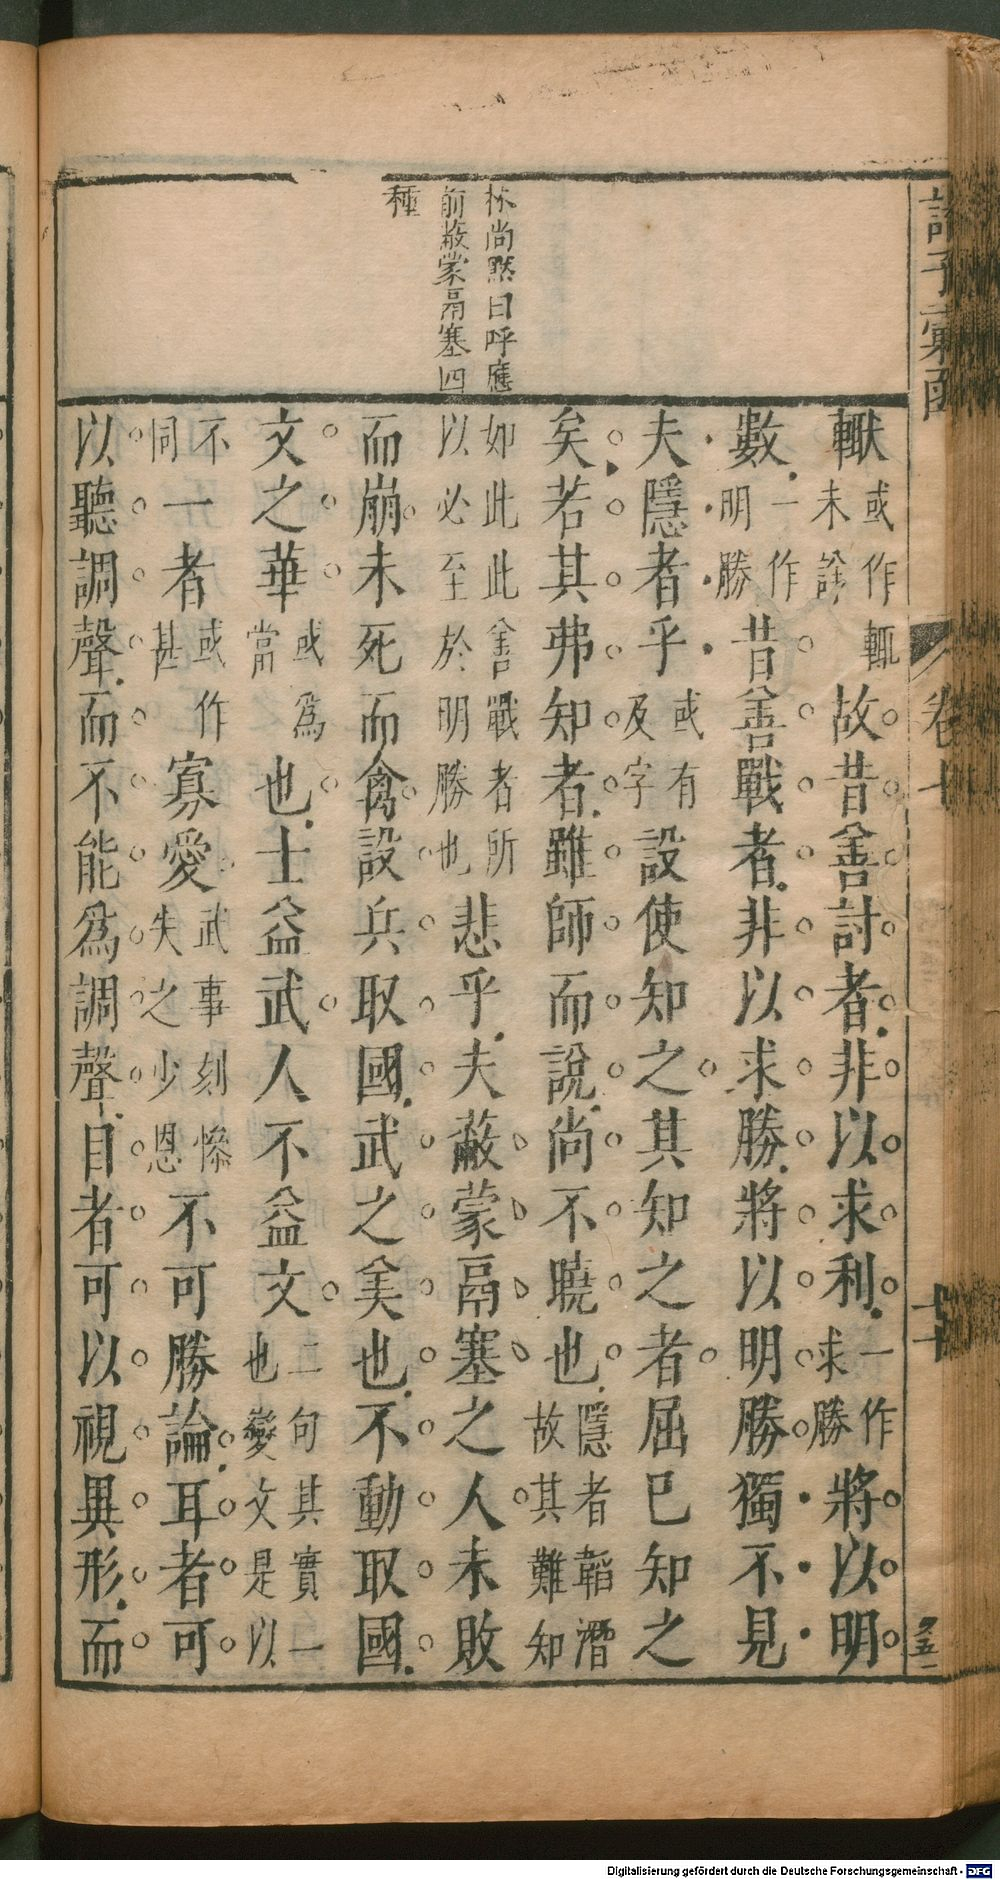 諸子彙函
卷十
七十
林尚默曰呼應
前蔽蒙鬲塞四
種
輙或作輒未詳故昔善討者非以求利一作求勝將以明
數一作明勝昔善戰者非以求勝將以明勝獨不見
夫隱者乎或有及字設使知之其知之者屈已知之
矣若其弗知者雖師而說尚不曉也隱者韜潛故其難知
如此此善戰者所以必至於明勝也悲乎夫蔽蒙鬲塞之人未敗
而崩未死而禽設兵取國武之美也不動取國
文之華或為當也士益武人不益文二句其實一也變文是以
不同一者或作甚寡愛武事刻慘失之少恩不可勝論耳者可
以聽調聲而不能為調聲目者可以視異形而
Digitalisierung gefördert durch die Deutsche Forschungsgemeinschaft - DFG